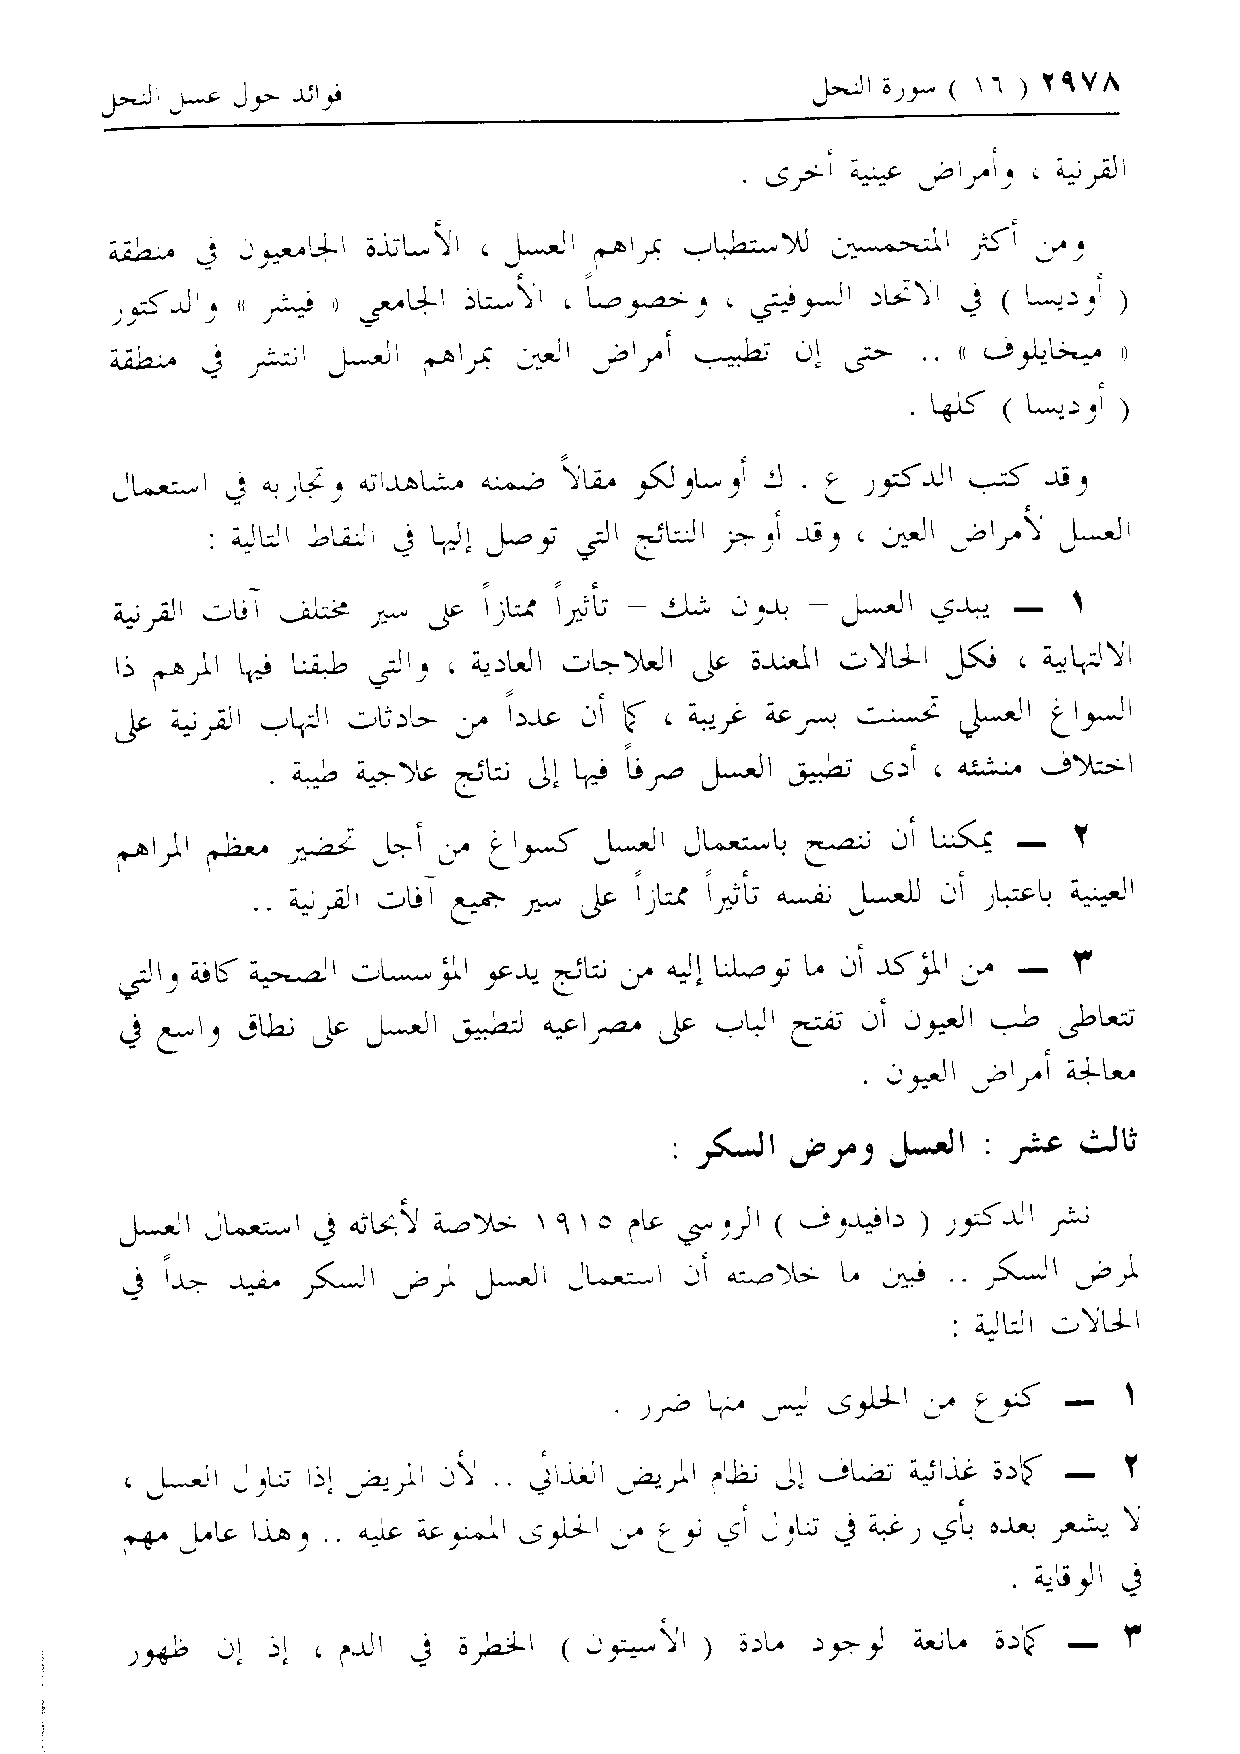 ٢٩٧٨ ( ١٦ ) سورة النحل فوائد حول عسل النحل
القرنية ، وأمراض عينية أخرى .
ومن أكثر المتحمسين للاستطباب بمراهم العسل ، الأساتذة الجامعيون في منطقة
( أوديسا ) في الاتحاد السوفيتي ، وخصوصاً ، الأستاذ الجامعي « فيشر » والدكتور
« ميخايلوف » .. حتى إن تطبيب أمراض العين بمراهم العسل انتشر في منطقة
( أوديسا ) كلها .
وقد كتب الدكتور ع . ك أوساولكو مقالاً ضمنه مشاهداته وتجاربه في استعمال
العسل لأمراض العين ، وقد أوجز النتائج التي توصل إليها في النقاط التالية :
١ — يبدي العسل – بدون شك – تأثيراً ممتازاً على سير مختلف آفات القرنية
الالتهابية ، فكل الحالات المعندة على العلاجات العادية ، والتي طبقنا فيها المرهم ذا
السواغ العسلي تحسنت بسرعة غريبة ، كما أن عدداً من حادثات التهاب القرنية على
اختلاف منشئه ، أدى تطبيق العسل صرفاً فيها إلى نتائج علاجية طيبة .
٢ — يمكننا أن ننصح باستعمال العسل كسواغ من أجل تحضير معظم المراهم
العينية باعتبار أن للعسل نفسه تأثيراً ممتازاً على سير جميع آفات القرنية ..
٣ — من المؤكد أن ما توصلنا إليه من نتائج يدعو المؤسسات الصحية كافة والتي
تتعاطى طب العيون أن تفتح الباب على مصراعيه لتطبيق العسل على نطاق واسع في
معالجة أمراض العيون .
ثالث عشر : العسل ومرض السكر :
نشر الدكتور ( دافيدوف ) الروسي عام ١٩١٥ خلاصة لأبحاثه في استعمال العسل
لمرض السكر .. فبين ما خلاصته أن استعمال العسل لمرض السكر مفيد جداً في
الحالات التالية :
١ — كنوع من الحلوى ليس منها ضرر .
٢ — كمادة غذائية تضاف إلى نظام المريض الغذائي .. لأن المريض إذا تناول العسل ،
لا يشعر بعده بأي رغبة في تناول أي نوع من الحلوى الممنوعة عليه .. وهذا عامل مهم
في الوقاية .
٣ — كمادة مانعة لوجود مادة ( الأسيتون ) الخطرة في الدم ، إذ إن ظهور